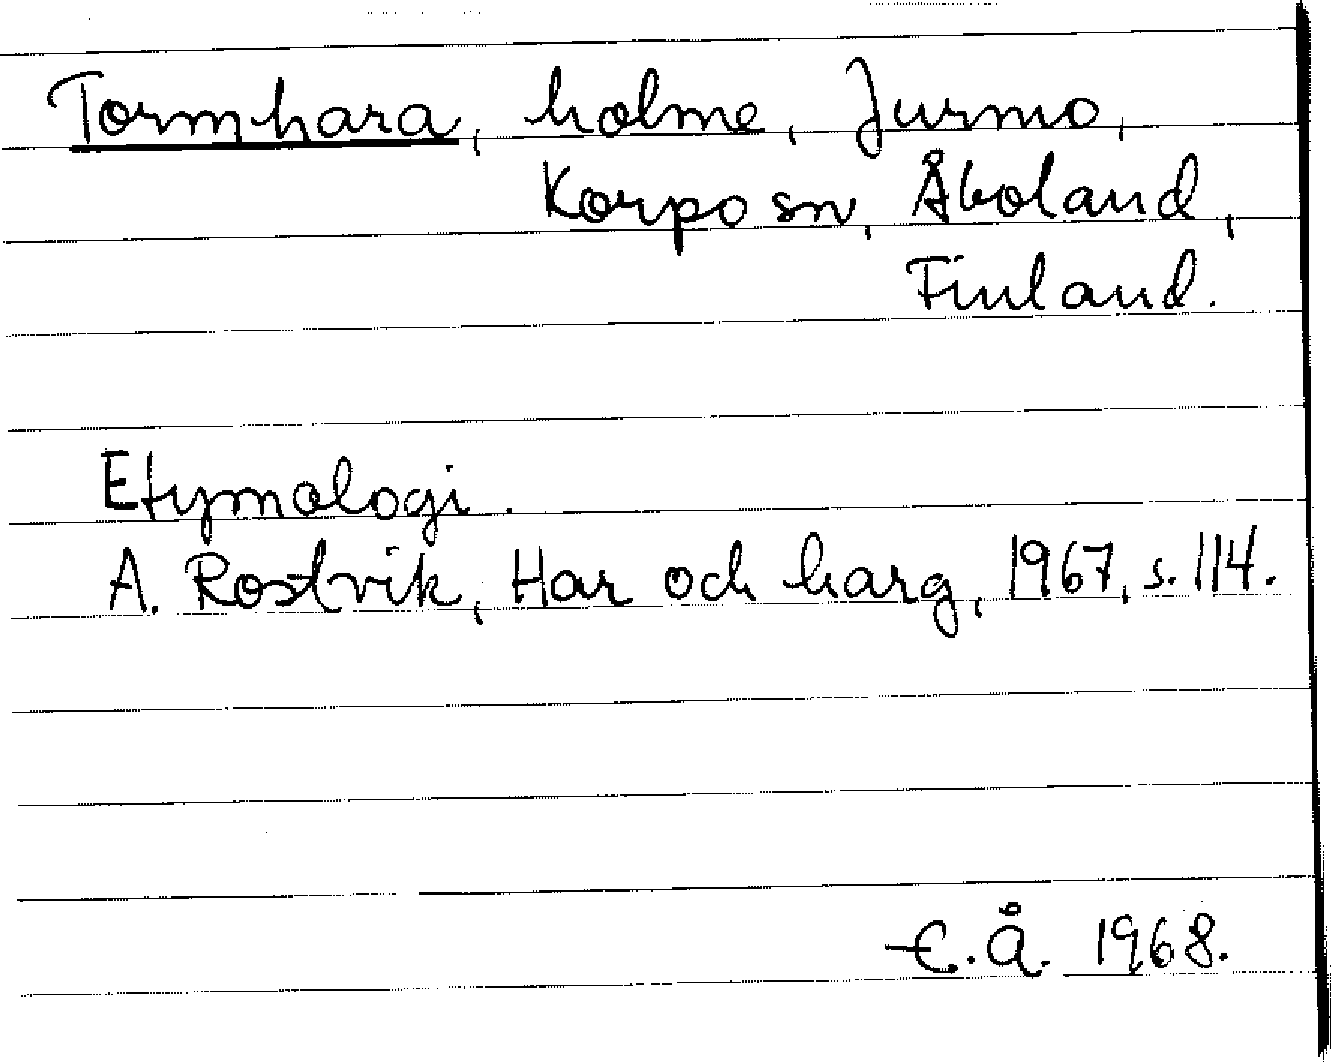 Tormhara, holme, Jurmo,
Korpo sn, Åboland,
Finland.
Etymologi.
A. Rostvik, Har och harg, 1967, s. 114.
E. Å. 1968.